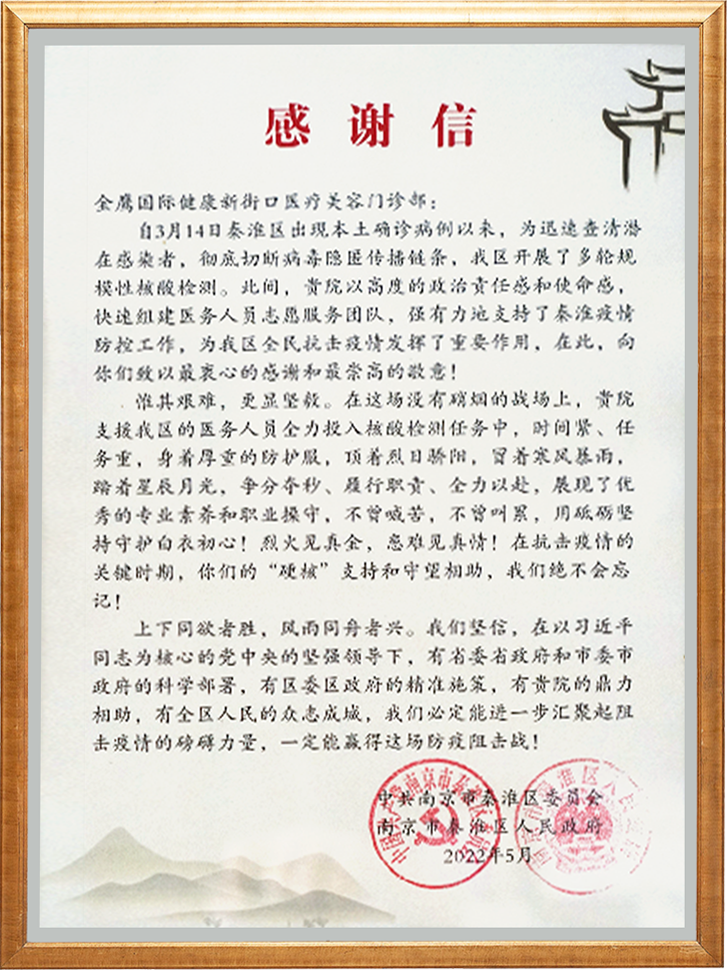 感谢信
金鹰国际健康新街口医疗美容门诊部：
自3月14日秦淮区出现本土确诊病例以来，为迅速查清潜
在感染者，彻底切断病毒隐匿传播链条，我区开展了多轮规
模性核酸检测。此间，贵院以高度的政治责任感和使命感，
快速组建医务人员志愿服务团队，强有力地支持了秦淮疫情
防控工作，为我区全民抗击疫情发挥了重要作用，在此，向
你们致以最衷心的感谢和最崇高的敬意！
惟其艰难，更显坚毅。在这场没有硝烟的战场上，贵院
支援我区的医务人员全力投入核酸检测任务中，时间紧、任
务重，身着厚重的防护服，顶着烈日骄阳，冒着寒风暴雨，
踏着星辰月光，争分夺秒、履行职责、全力以赴，展现了优
秀的专业素养和职业操守，不曾喊苦，不曾叫累，用砥砺坚
持守护白衣初心！烈火见真金，患难见真情！在抗击疫情的
关键时期，你们的“硬核”支持和守望相助，我们绝不会忘
记！
上下同欲者胜，风雨同舟者兴。我们坚信，在以习近平
同志为核心的党中央的坚强领导下，有省委省政府和市委市
政府的科学部署，有区委区政府的精准施策，有贵院的鼎力
相助，有全区人民的众志成城，我们必定能进一步汇聚起阻
击疫情的磅礴力量，一定能赢得这场防疫阻击战！
中共南京市秦淮区委员会
南京市秦淮区人民政府
2022年5月